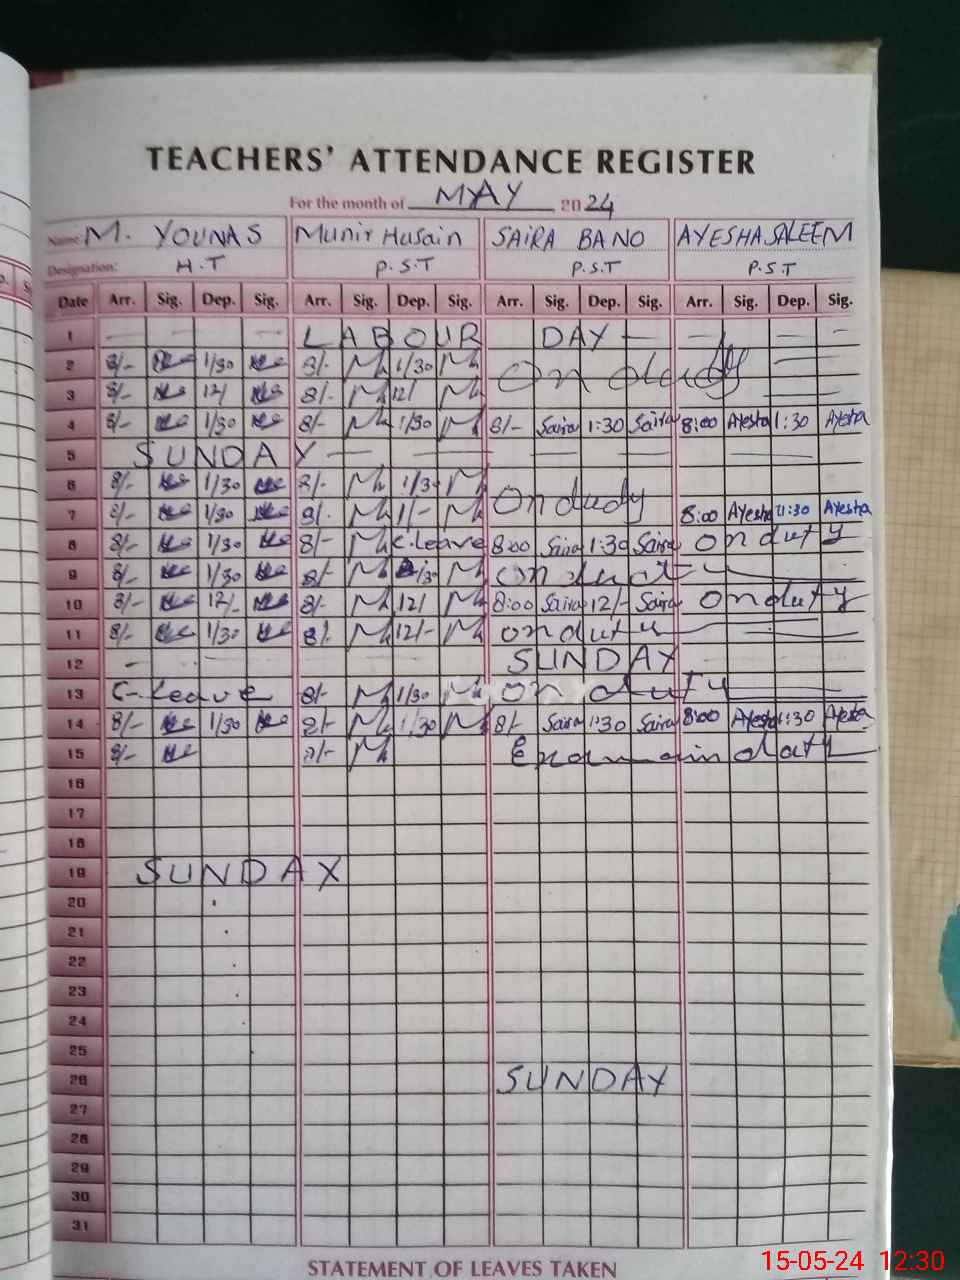 TEACHERS' ATTENDANCE REGISTER
For the month of MAY 2024
Name: M. YOUNAS Munir Husain SAIRA BANO AYESHA SALEEM
Designation: H.T P.S.T P.S.T P.S.T
Date Arr. Sig. Dep. Sig. Arr. Sig. Dep. Sig. Arr. Sig. Dep. Sig. Arr. Sig. Dep. Sig.
1 LABOUR DAY
2 8/- 1/30 8/- 1/30 On duty
3 8/- 12/ 8/- 12/
4 8/- 1/30 8/- 1/30 8/- Saira 1:30 Saira 8:00 Ayesha 1:30 Ayesha
5 SUNDAY
6 8/- 1/30 8/- 1/30 On dudy
7 8/- 1/30 8/- 1/- 8:00 Ayesha 11:30 Ayesha
8 8/- 1/30 8/- C.Leave 8:00 Saira 1:30 Saira on duty
9 8/- 1/30 8/- 1/30 on duty
10 8/- 12/- 8/- 12/ 8:00 Saira 12/- Saira on duty
11 8/- 1/30 8/- 12/- on duty
12 SUNDAY
13 C-Leave 8/- 1/30 on duty
14 8/- 1/30 8/- 1/30 8/- Saira 1:30 Saira 8:00 Ayesha 1:30 Ayesha
15 8/- 8/- duty
16
17
18
19 SUNDAY
20
21
22
23
24
25
26 SUNDAY
27
28
29
30
31
STATEMENT OF LEAVES TAKEN
15-05-24 12:30